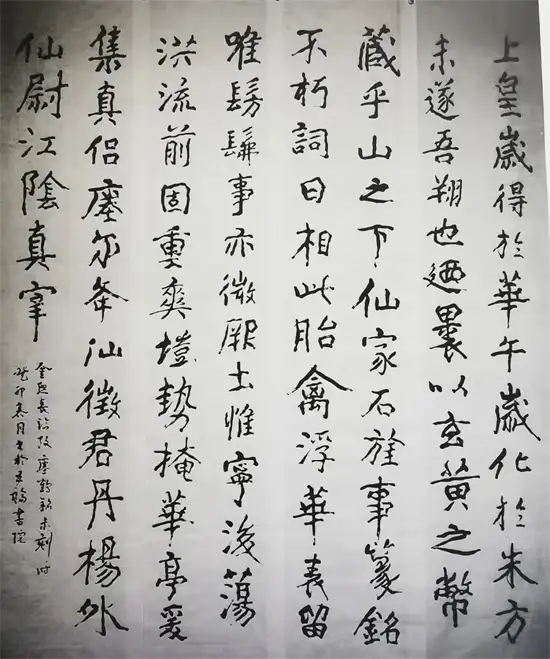 上皇歲得於華午歲化於朱方
未遂吾翔也迺裹以玄黃之幣
藏乎山之下仙家石旌事篆銘
不朽詞曰相此胎禽浮華表留
唯髣髴事亦微厥土惟寧後蕩
洪流前固重爽塏勢掩華亭爰
集真侶瘞尔夅汕徵君丹楊外
仙尉江陰真宰
鶴銘未刻時
癸卯春月書於書院